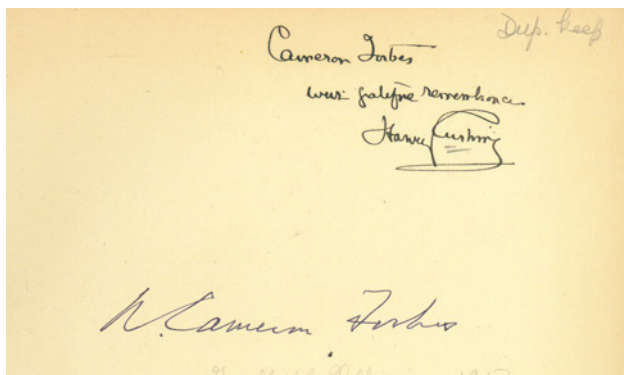 Dup. keep
Cameron Forbes
with grateful remembrance
Harvey Cushing
W. Cameron Forbes